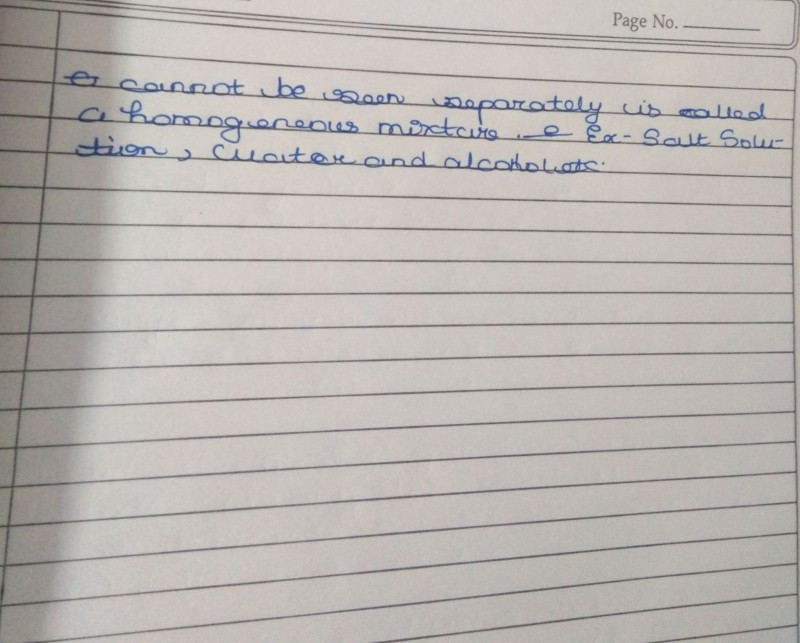 Page No.
cannot be seen separately is called
a homogeneous mixture Ex- Salt Solu-
tion, water and alcohol etc.